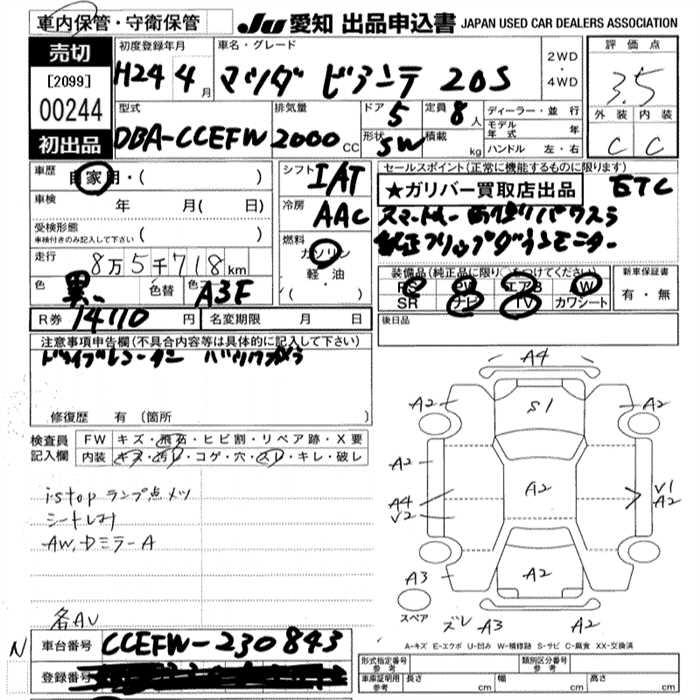 車内保管・守衛保管
JU 愛知 出品申込書 JAPAN USED CAR DEALERS ASSOCIATION
売切
[2099]
00244
初出品
初度登録年月
H24 4月
車名・グレード
マツダ ビアンテ 20S
2WD
・
4WD
評価点
3.5
外装 内装
C C
型式
DBA-CCEFW
排気量
2000 CC
ドア 5
形状 SW
定員 8人
積載 kg
ディーラー・並行
モデル年式 年
ハンドル 左・右
車歴
自家用・( )
車検 年 月( 日)
受検形態
車検付きのみ記入して下さい ( )
走行
8万5千718km
色 黒
色替
色No. A3F
シフト IAT
冷房 AAC
燃料
ガソリン
軽・油
( )
セールスポイント(正常に機能するものに限ります)
★ガリバー買取店出品 ETC
スマートキー 両側パワスラ
純正フリップダウンモニター
装備品(純正品に限り○をつけてください)
PS PW エアB AW
SR ナビ TV カワシート
新車保証書
有・無
R券 14110円
名変期限 月 日
後日品
注意事項申告欄(不具合内容等は具体的に記入して下さい)
ドライブレコーダー バックカメラ
修復歴 有(箇所 )
検査員
記入欄
FW キズ・飛石・ヒビ割・リペア跡・X要
内装 キズ・汚レ・コゲ・穴・スレ・キレ・破レ
istop ランプ点メツ
シートレカ
AW,Dミラー A
各AU
A4
A2
S1
A2
A2
A4
V2
A2
V1
A2
A3
A2
スペア
ズレ A3
A2
A-キズ E-エクボ U-凹み W-補修跡 S-サビ C-腐食 XX-交換済
N
車台番号 CCEFW-230843
登録番号
形式指定番号
参考
類別区分番号
参考
車庫証明用
参考
長さ cm
幅 cm
高さ cm